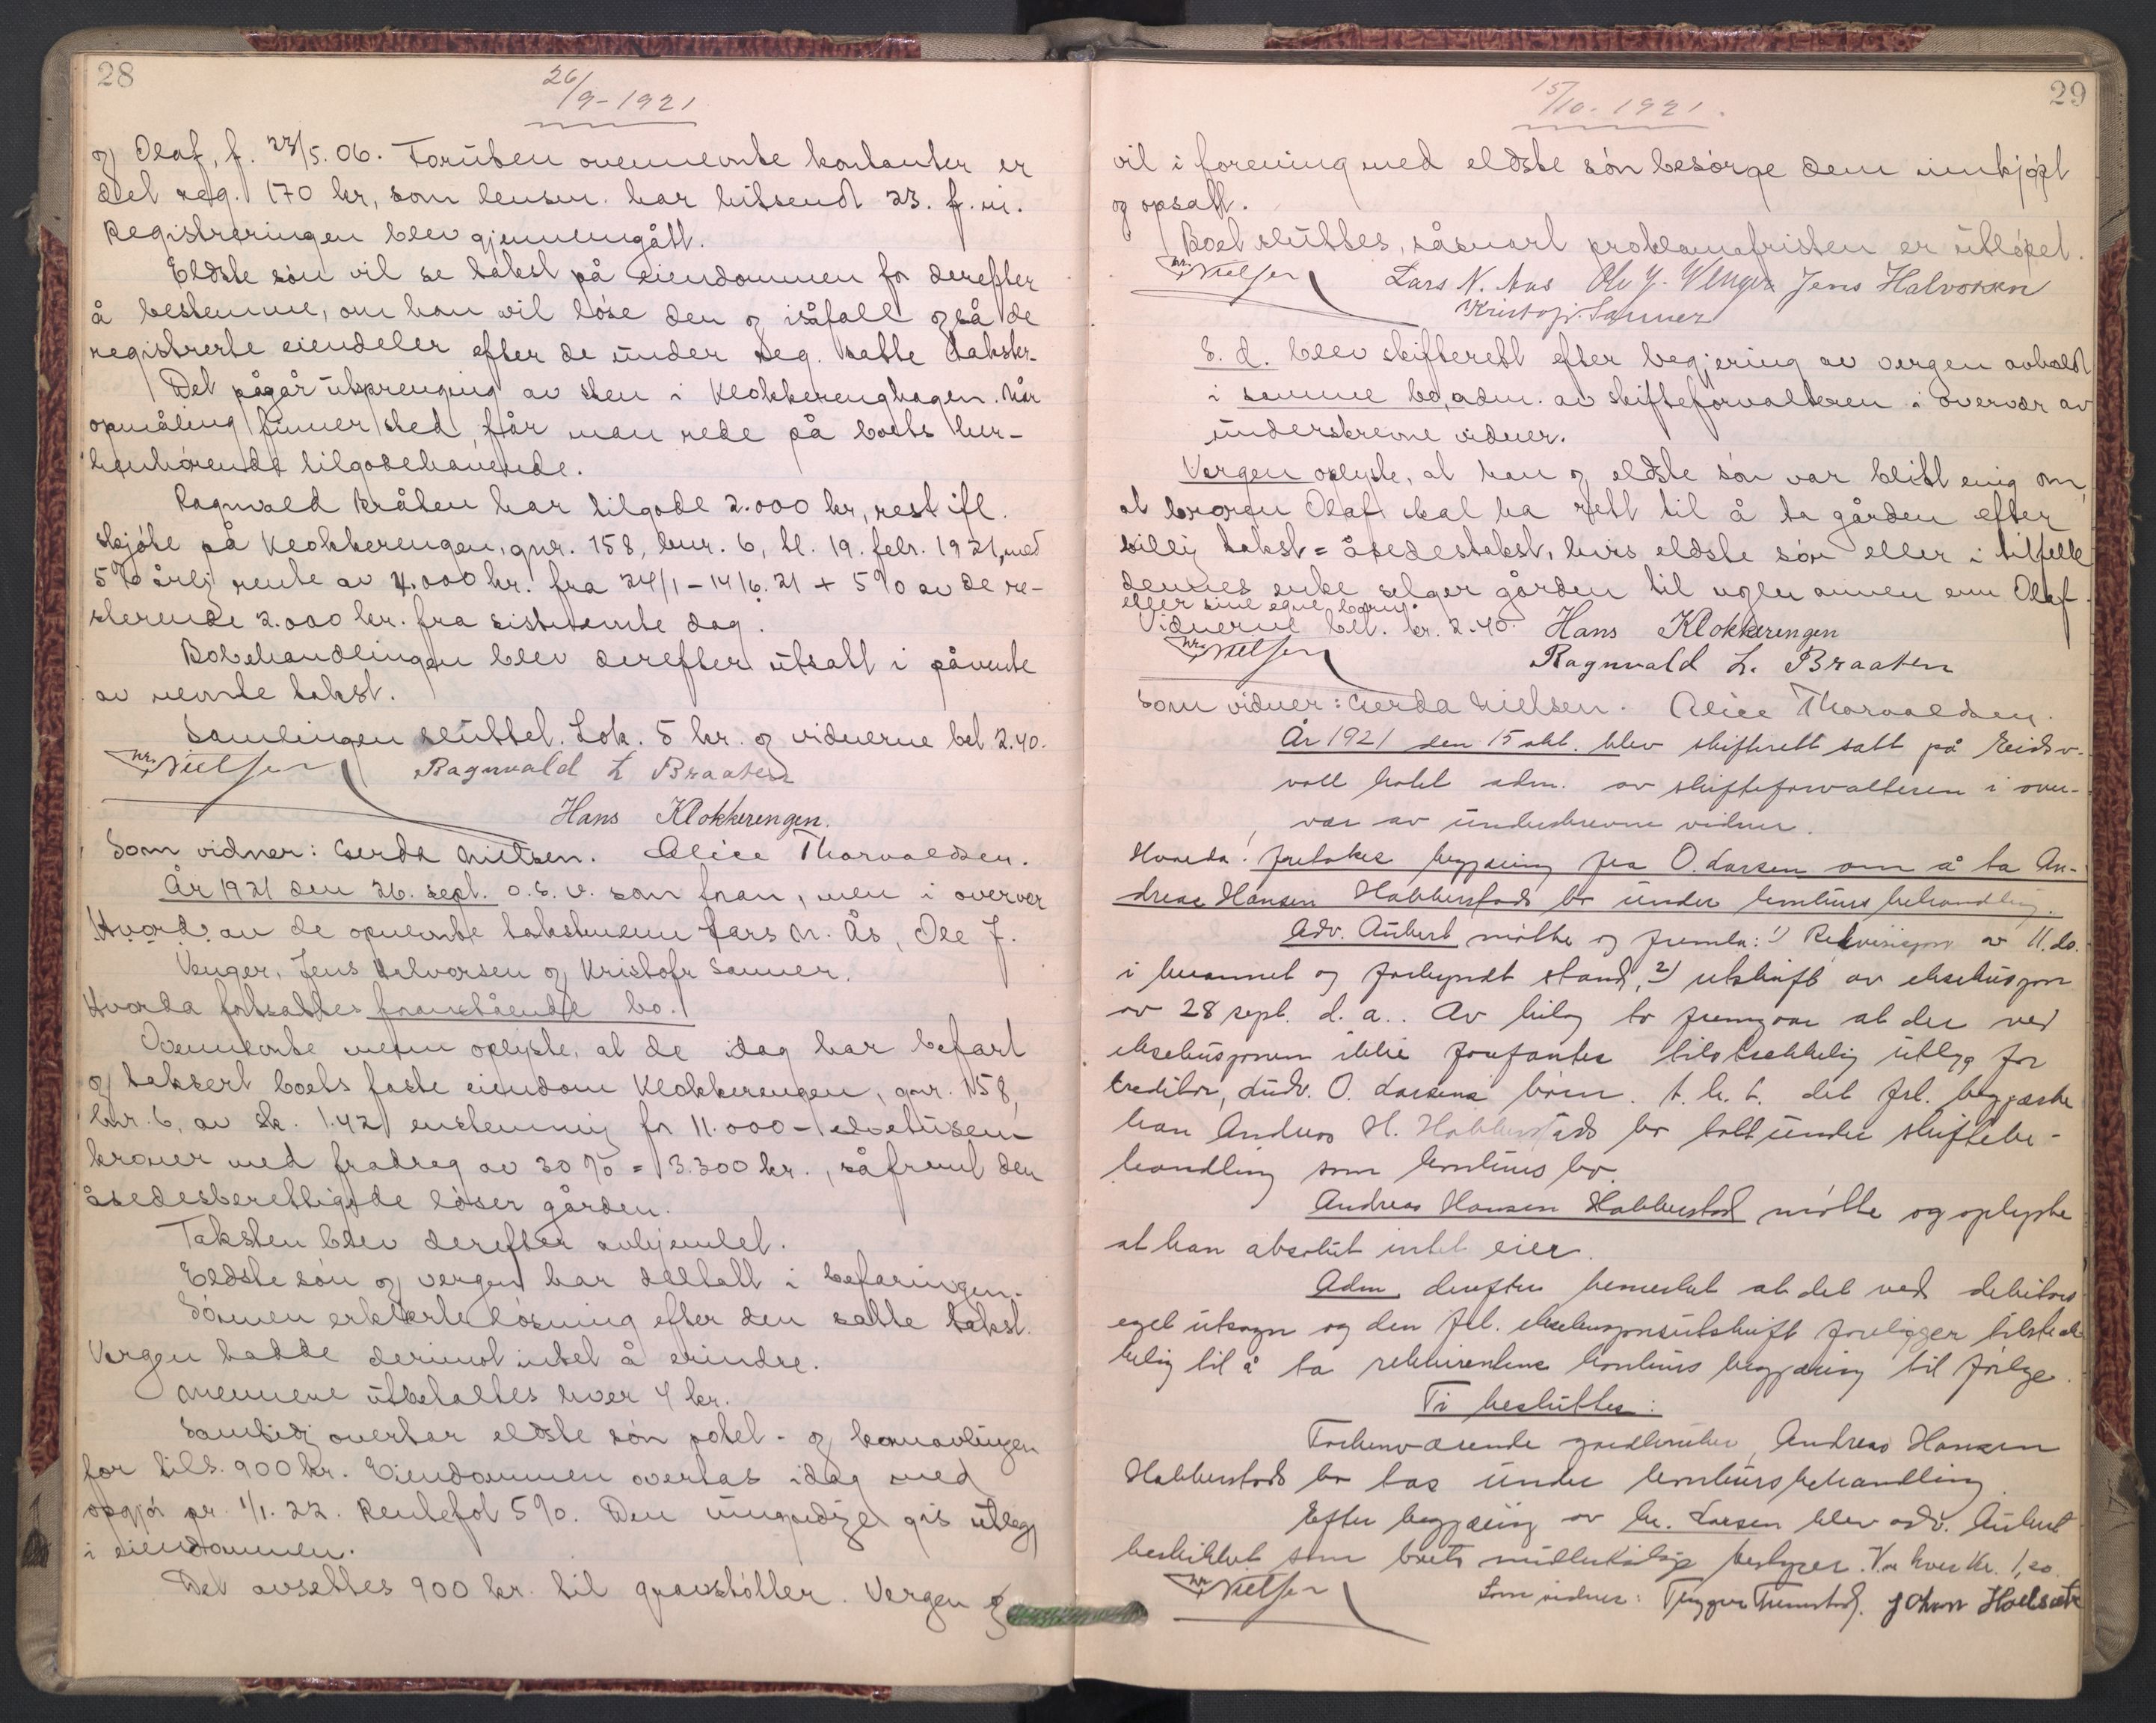 28
26/9-1921
og Olaf, f. 23/5.06. Foruten ovennevnte kontanter er
det reg. 170 kr, som lensm. har hitsendt 23. f.m.
Registreringen blev gjennemgått.
Eldste søn vil se takst på eiendommen for derefter
å bestemme, om han vil løse den og isåfall også de
registrerte eiendeler efter de under reg. satte takster.
Det pågår utsprengning av sten i Klokkerenghagen. Når
opmåling finner sted, får man rede på boets her-
henhørende tilgodehavende.
Ragnvald Bråten har tilgode 2.000 kr, rest ifl.
skjøte på Klokkerengen, gnr. 158, bnr. 6, tl. 19. febr. 1921, med
5% årlig rente av 4.000 kr. fra 24/1-14/6.21 + 5% av de re-
sterende 2.000 kr. fra sistnevnte dag.
Bobehandlingen blev derefter utsatt i påvente
av nevnte takst.
Samlingen sluttet. Lok. 5 kr. og vidnerne bet 2.40.
Nielsen Ragnvald L Braaten
Hans Klokkerengen.
Som vidner: Gerda Nielsen. Alice Thorvaldsen.
År 1921 den 26. sept. o.s.v. som foran, men i overvær
Hvorda: av de opnevnte takstmenn Lars N. Ås, Ole J.
Venger, Jens Halvorsen og Kristofr Sanner.
Hvorda fortsattes foranstående bo.
Ovennevnte menn oplyste, at de idag har befart
og taksert boets faste eiendom Klokkerengen, gnr. 158,
bnr. 6, av sk. 1.42 enstemmig for 11.000 - elvetusen-
kroner med fradrag av 30% = 3.300 kr., såfremt den
åsedesberettigede løser gården.
Taksten blev derefter avhjemlet.
Eldste søn og vergen har deltatt i befaringen.
Sønnen erklærte løsning efter den satte takst.
Vergen hadde derimot intet å erindre.
Mennene utbetaltes hver 4 kr.
Samtidig overtar eldste søn potet- og kornavlingen
for tils. 900 kr. Eiendommen overtas idag med
opgjør pr. 1/1. 22. Rentefot 5%. Den umyndige gis utlegg
i eiendommen.
Det avsettes 900 kr. til gravstøtter. Vergen og
29
15/10-1921.
vil i forening med eldste søn besørge dem innkjøpt
og opsatt.
Boet sluttes, såsnart proklamafristen er utløpet.
Nielsen Lars N. Aas Ole J. Venger Jens Halvorsen
Kristofr. Sanner
S. d. blev skifterett efter begjering av vergen avholdt
i samme bo, adm. av skifteforvalteren i overvær av
underskrevne vidner.
Vergen oplyste, at han og eldste søn var blitt enig om,
at broren Olaf skal ha rett til å ta gården efter
billig takst = åsedestakst, hvis eldste søn eller i tilfelle
dennes enke selger gården til nogen annen enn Olaf
eller sine egne barn.
Vidnerne bet. kr. 2.40. Hans Klokkerengen
Nielsen Ragnvald L. Braaten
Som vidner: Gerda Nielsen. Alice Thorvaldsen.
År 1921 den 15 okt. blev skifterett satt på Eidsv-
voll hotel adm. av skifteforvalteren i over-
vær av underskrevne vidner.
Hvorda: foretokes begjæring fra O. Larsen om å ta An-
dreas Hansen Habberstads bo under konkursbehandling.
Adv. Aubert møtte og fremla: 1) Rekvisisjon av 11. ds.
i beramet og forkyndt stand, 2) utskrift av eksekusjon
av 28 sept. d. a.. Av bilag to fremgaar at der ved
eksekusjonen ikke forefantes tilstrekkelig utlegg for
kreditor, Ludv. O. Larsens krav. I h. t. det frl. begjærte
han Andreas H. Habberstads bo tatt under skiftebe-
handling som konkursbo.
Andreas Hansen Habberstad møtte og oplyste
at han absolut intet eier.
Adm. derefter bemerket at det ved debitors
eget utsagn og den frl. eksekusjonsutskrift foreligger tilstrek-
kelig til å ta rekvirentens konkursbegjæring til følge.
Ti besluttes:
Forhenværende gardbruker, Andreas Hansen
Habberstads bo tas under konkursbehandling.
Efter begjæring av hr. Larsen blev adv. Aubert
beskikket som boets midlertidige bestyrer. V. hver Kr. 1,20.
Nielsen Som vidner: Johan Holsæter